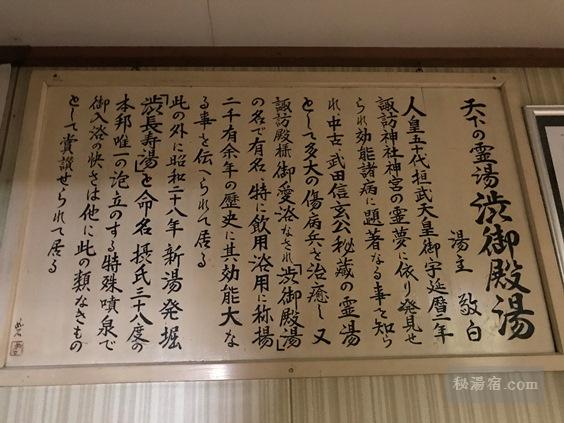 天下の霊湯渋御殿湯
湯主 敬白
人皇五十代桓武天皇御宇延暦二年
諏訪神社神宮の霊夢に依り発見せ
られ効能諸病に顕著なる事を知ら
れ中古、武田信玄公秘蔵の霊湯
として多大の傷病兵を治癒し又
諏訪殿様御愛浴なされ「渋御殿湯」
の名で有名、特に飲用浴用に称揚
二千有余年の歴史に其効能大な
る事を伝へられて居る
此の外に昭和二十八年新湯発掘
「渋長寿湯」と命名摂氏三十八度の
本邦唯一の泡立のする特殊噴泉で
御入浴の快さは他に此の類なきもの
として賞讃せられて居る
秘湯宿.com